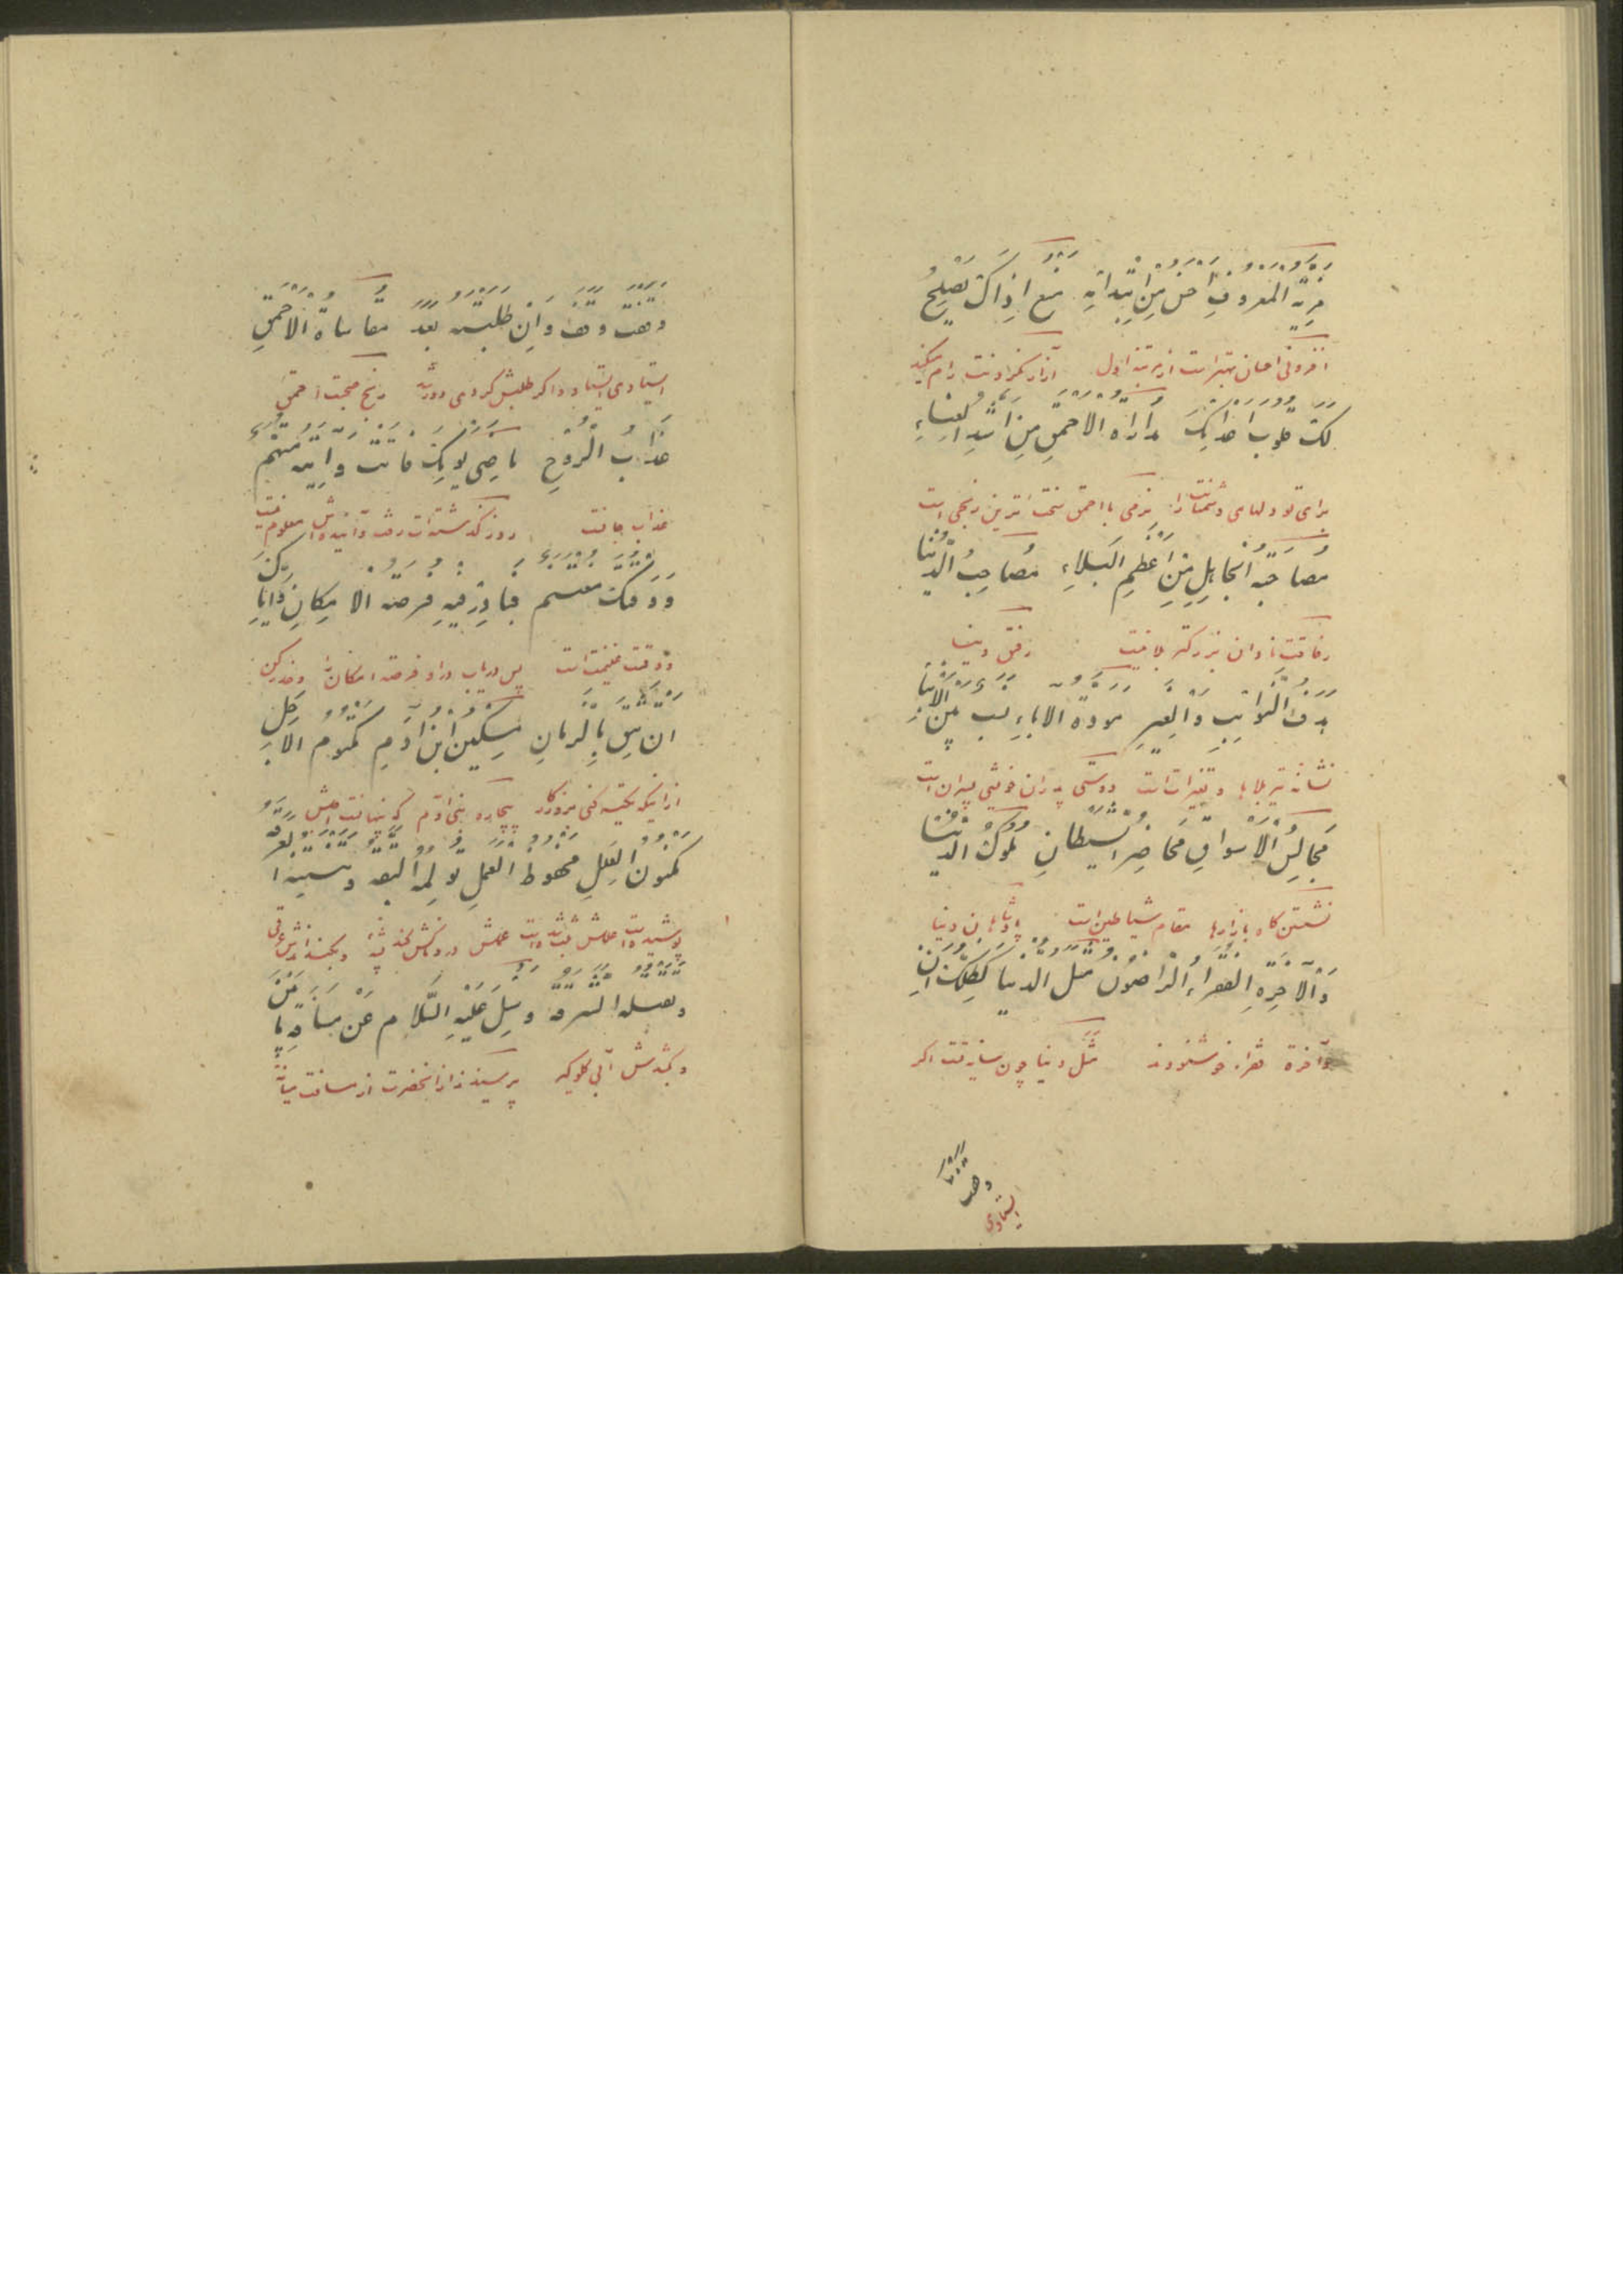 مزیة المعروف احسن من ابتدائه منع اذاک یصلح
افزونی احسان بهتر است از مرتبه اول آزار نکردنت رام میکند
لک قلوب اعدائک مداراة الاحمق من اشد العناء
برای تو دلهای دشمنانت را نرمی با احمق سخت ترین رنجی است
مصاحبة الجاهل من اعظم البلاء مصاحب الدنیا
رفاقت نادان بزرگتر بلائیست رفیق دنیا
هدف النوائب والغیر مودة الاباء نسب بین الابناء
نشانه تیر بلاها و تغیرات است دوستی پدران خویشی پسران است
مجالس الاسواق محاضر الشیطان ملوک الدنیا
نشستن گاه بازارها مقام شیاطین است پادشاهان دنیا
والآخرة الفقراء الراضون مثل الدنیا کظلک ان
وآخرة فقراء خوشنودند مثل دنیا چون سایه تست اگر
وقفت
ایستادی
وقفت وقف وان طلبته بعد مقاساة الاحمق
ایستادی ایستاد و اگر طلبش کردی دور شد رنج صحبت احمق
عذاب الروح ماضی یومک فائت وآتیه متهم
عذاب جانست روز گذشته ات رفت و آینده اش معلوم نیست
ووقتک مغتنم فبادر فیه فرصة الامکان وایاک
و وقتت غنیمت است پس دریاب در او فرصت امکان را و حذر کن
ان تثق بالزمان مسکین ابن آدم مکتوم الاجل
از اینکه تکیه کنی بروزگار بیچاره بنی آدم که پنهانست اجلش
مکنون العلل محفوظ العمل تؤلمه البقة وتنتنه العرقة
پوشیده است علتش ضبط شده است عملش دردناکش کند پشه و بگنداندش عرقی
وتقتله الشرقة وسئل علیه السلام عن مسافة ما بین
و بکشدش آبی گلوگیر پرسیدند از آنحضرت از مسافت میانه